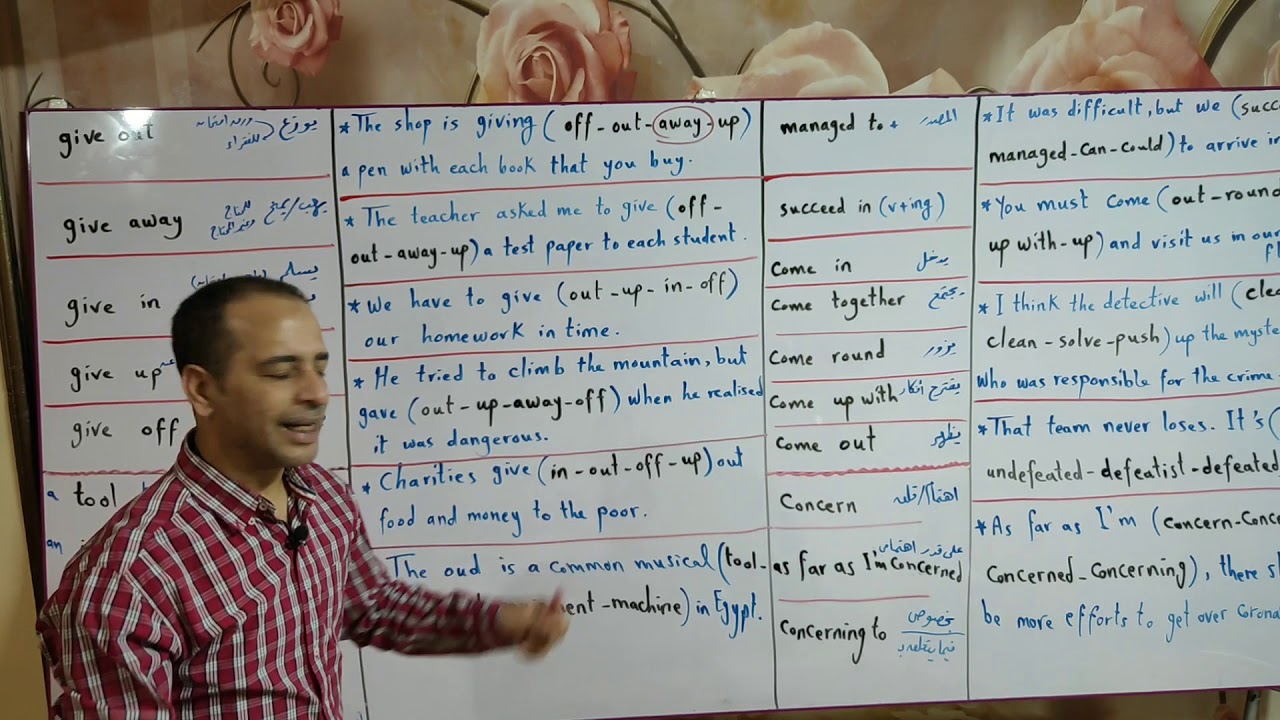 give out يوزع ورق امتحان للفقراء
give away يهب/يمنح
give in يسلم
give up
give off
a tool
an
*The shop is giving (off-out-away-up)
a pen with each book that you buy.
*The teacher asked me to give (off-
out-away-up) a test paper to each student.
*We have to give (out-up-in-off)
our homework in time.
*He tried to climb the mountain, but
gave (out-up-away-off) when he realised
it was dangerous.
*Charities give (in-out-off-up) out
food and money to the poor.
The oud is a common musical (tool-
ment-machine) in Egypt.
managed to + المصدر
succeed in (v+ing)
Come in يدخل
Come together يجتمع
Come round يزور
Come up with يقترح أفكار
Come out يظهر
Concern اهتمام/قلق
as far as I'm Concerned على قدر اهتمامى
Concerning to بخصوص
فيما يتعلق بـ
*It was difficult, but we (succ
managed-Can-Could) to arrive in
*You must come (out-round
up with-up) and visit us in our
fl
*I think the detective will (clea
clean-solve-push) up the myste
who was responsible for the crime.
*That team never loses. It's (
undefeated-defeatist-defeated
*As far as I'm (Concern-Conce
Concerned-Concerning), there s
be more efforts to get over Corona